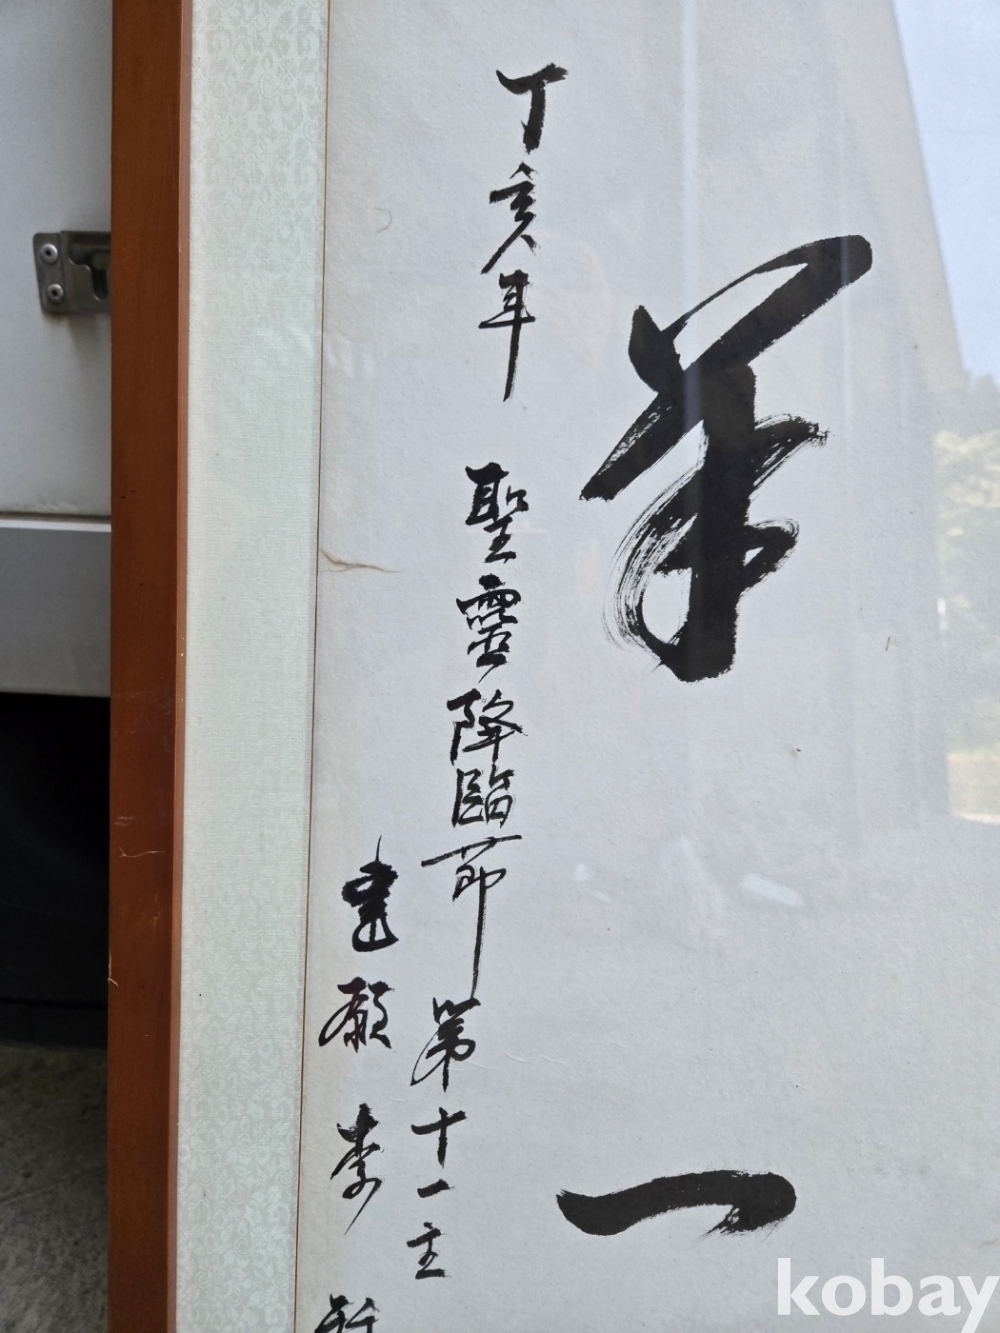 一
丁亥年 聖靈降臨節 第十一主
願 李
kobay